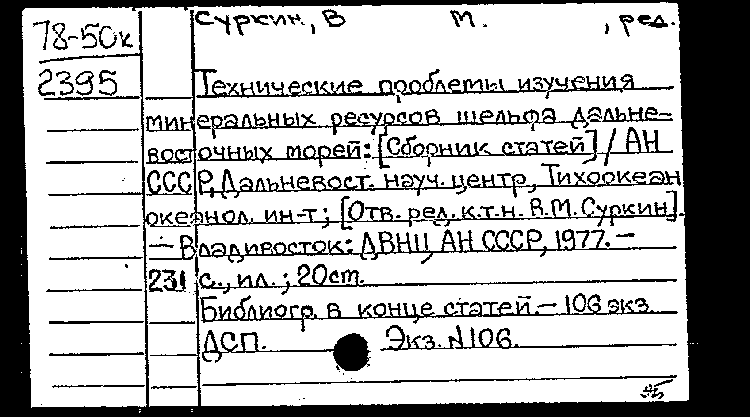 Суркин, В М. , ред.
78-50к
2395
Технические проблемы изучения
минеральных ресурсов шельфа дальне-
восточных морей: [Сборник статей] / АН
СССР, Дальневост. науч. центр, Тихоокеан
океанол. ин-т; [Отв. ред. к.т.н. В.М. Суркин].
— Владивосток: ДВНЦ АН СССР, 1977. —
231 с., ил.; 20см.
Библиогр. в конце статей. — 106 экз.
ДСП. Экз. N106.